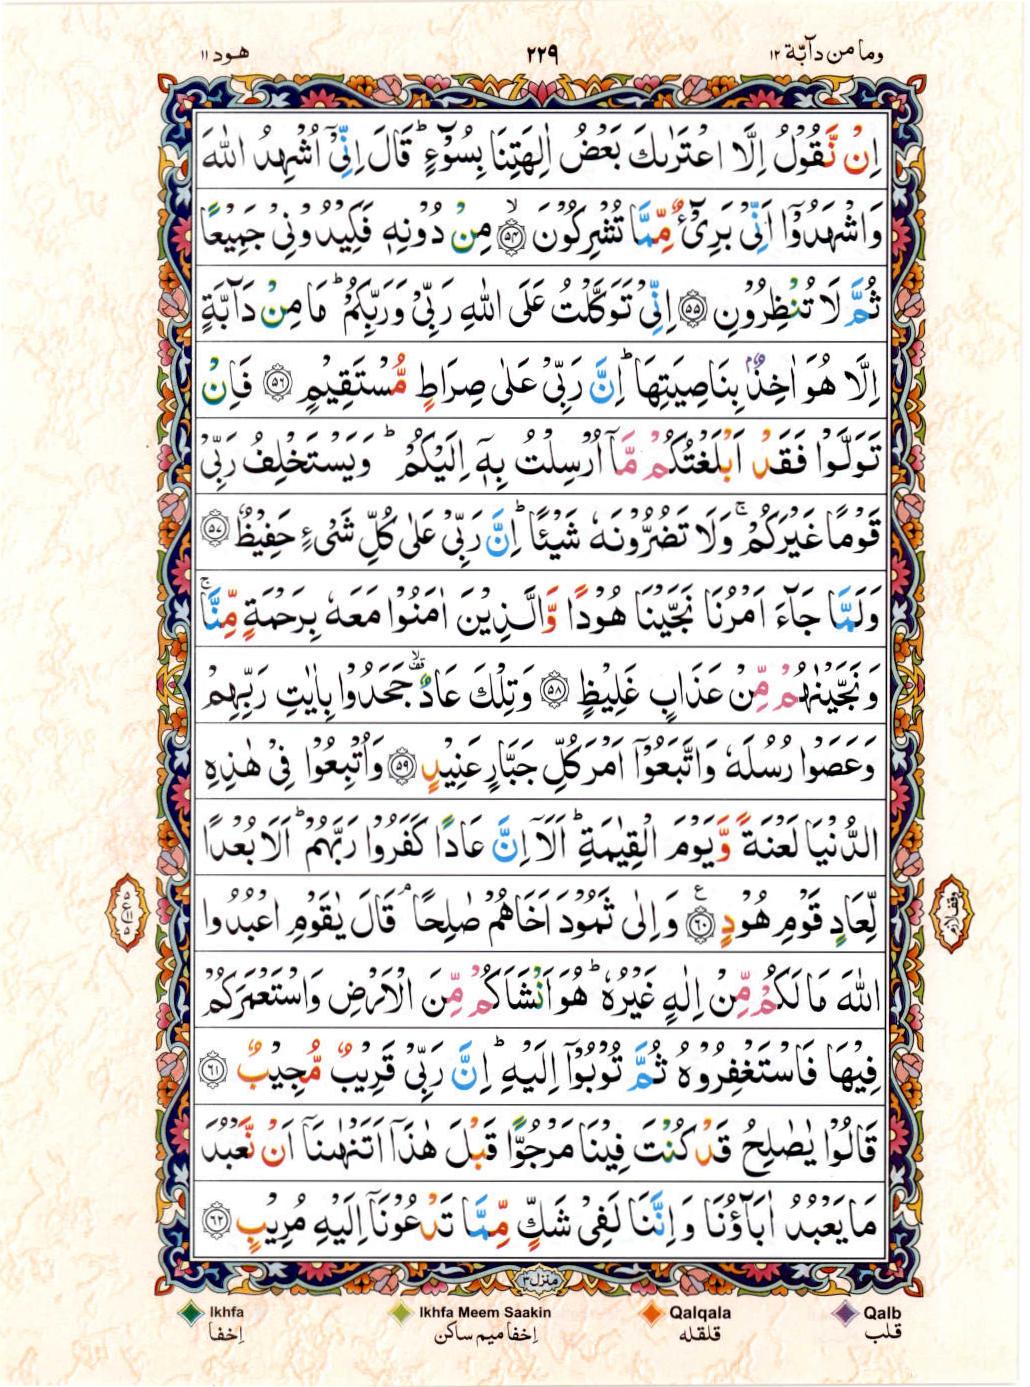 وما من دآبّة ١٢
٢٢٩
هود ١١
اِنْ نَّقُوْلُ اِلَّا اعْتَرٰىكَ بَعْضُ اٰلِهَتِنَا بِسُوْٓءٍ ؕ قَالَ اِنِّيْۤ اُشْهِدُ اللّٰهَ
وَاشْهَدُوْۤا اَنِّيْ بَرِيْٓءٌ مِّمَّا تُشْرِكُوْنَ ۙ﴿۵۴﴾ مِنْ دُوْنِهٖ فَكِيْدُوْنِيْ جَمِيْعًا
ثُمَّ لَا تُنْظِرُوْنِ ﴿۵۵﴾ اِنِّيْ تَوَكَّلْتُ عَلَى اللّٰهِ رَبِّيْ وَرَبِّكُمْ ؕ مَا مِنْ دَآبَّةٍ
اِلَّا هُوَ اٰخِذٌۢ بِنَاصِيَتِهَا ؕ اِنَّ رَبِّيْ عَلٰى صِرَاطٍ مُّسْتَقِيْمٍ ﴿۵۶﴾ فَاِنْ
تَوَلَّوْا فَقَدْ اَبْلَغْتُكُمْ مَّاۤ اُرْسِلْتُ بِهٖۤ اِلَيْكُمْ ؕ وَيَسْتَخْلِفُ رَبِّيْ
قَوْمًا غَيْرَكُمْ ۚ وَلَا تَضُرُّوْنَهٗ شَيْـًٔا ؕ اِنَّ رَبِّيْ عَلٰى كُلِّ شَيْءٍ حَفِيْظٌ ﴿۵۷﴾
وَلَمَّا جَآءَ اَمْرُنَا نَجَّيْنَا هُوْدًا وَّالَّذِيْنَ اٰمَنُوْا مَعَهٗ بِرَحْمَةٍ مِّنَّا ۚ
وَنَجَّيْنٰهُمْ مِّنْ عَذَابٍ غَلِيْظٍ ﴿۵۸﴾ وَتِلْكَ عَادٌ ۙ جَحَدُوْا بِاٰيٰتِ رَبِّهِمْ
وَعَصَوْا رُسُلَهٗ وَاتَّبَعُوْۤا اَمْرَ كُلِّ جَبَّارٍ عَنِيْدٍ ﴿۵۹﴾ وَاُتْبِعُوْا فِيْ هٰذِهِ
الدُّنْيَا لَعْنَةً وَّيَوْمَ الْقِيٰمَةِ ؕ اَلَاۤ اِنَّ عَادًا كَفَرُوْا رَبَّهُمْ ؕ اَلَا بُعْدًا
لِّعَادٍ قَوْمِ هُوْدٍ ﴿۶۰﴾ وَاِلٰى ثَمُوْدَ اَخَاهُمْ صٰلِحًا ۘ قَالَ يٰقَوْمِ اعْبُدُوا
اللّٰهَ مَا لَكُمْ مِّنْ اِلٰهٍ غَيْرُهٗ ؕ هُوَ اَنْشَاَكُمْ مِّنَ الْاَرْضِ وَاسْتَعْمَرَكُمْ
فِيْهَا فَاسْتَغْفِرُوْهُ ثُمَّ تُوْبُوْۤا اِلَيْهِ ؕ اِنَّ رَبِّيْ قَرِيْبٌ مُّجِيْبٌ ﴿۶۱﴾
قَالُوْا يٰصٰلِحُ قَدْ كُنْتَ فِيْنَا مَرْجُوًّا قَبْلَ هٰذَاۤ اَتَنْهٰىنَاۤ اَنْ نَّعْبُدَ
مَا يَعْبُدُ اٰبَآؤُنَا وَاِنَّنَا لَفِيْ شَكٍّ مِّمَّا تَدْعُوْنَاۤ اِلَيْهِ مُرِيْبٍ ﴿۶۲﴾
وقف لازم
۵ ع ۱۱ ۵
منزل ٣
Ikhfa
Ikhfa Meem Saakin
Qalqala
Qalb
اِخفا
اِخفا میم ساکن
قلقله
قلب